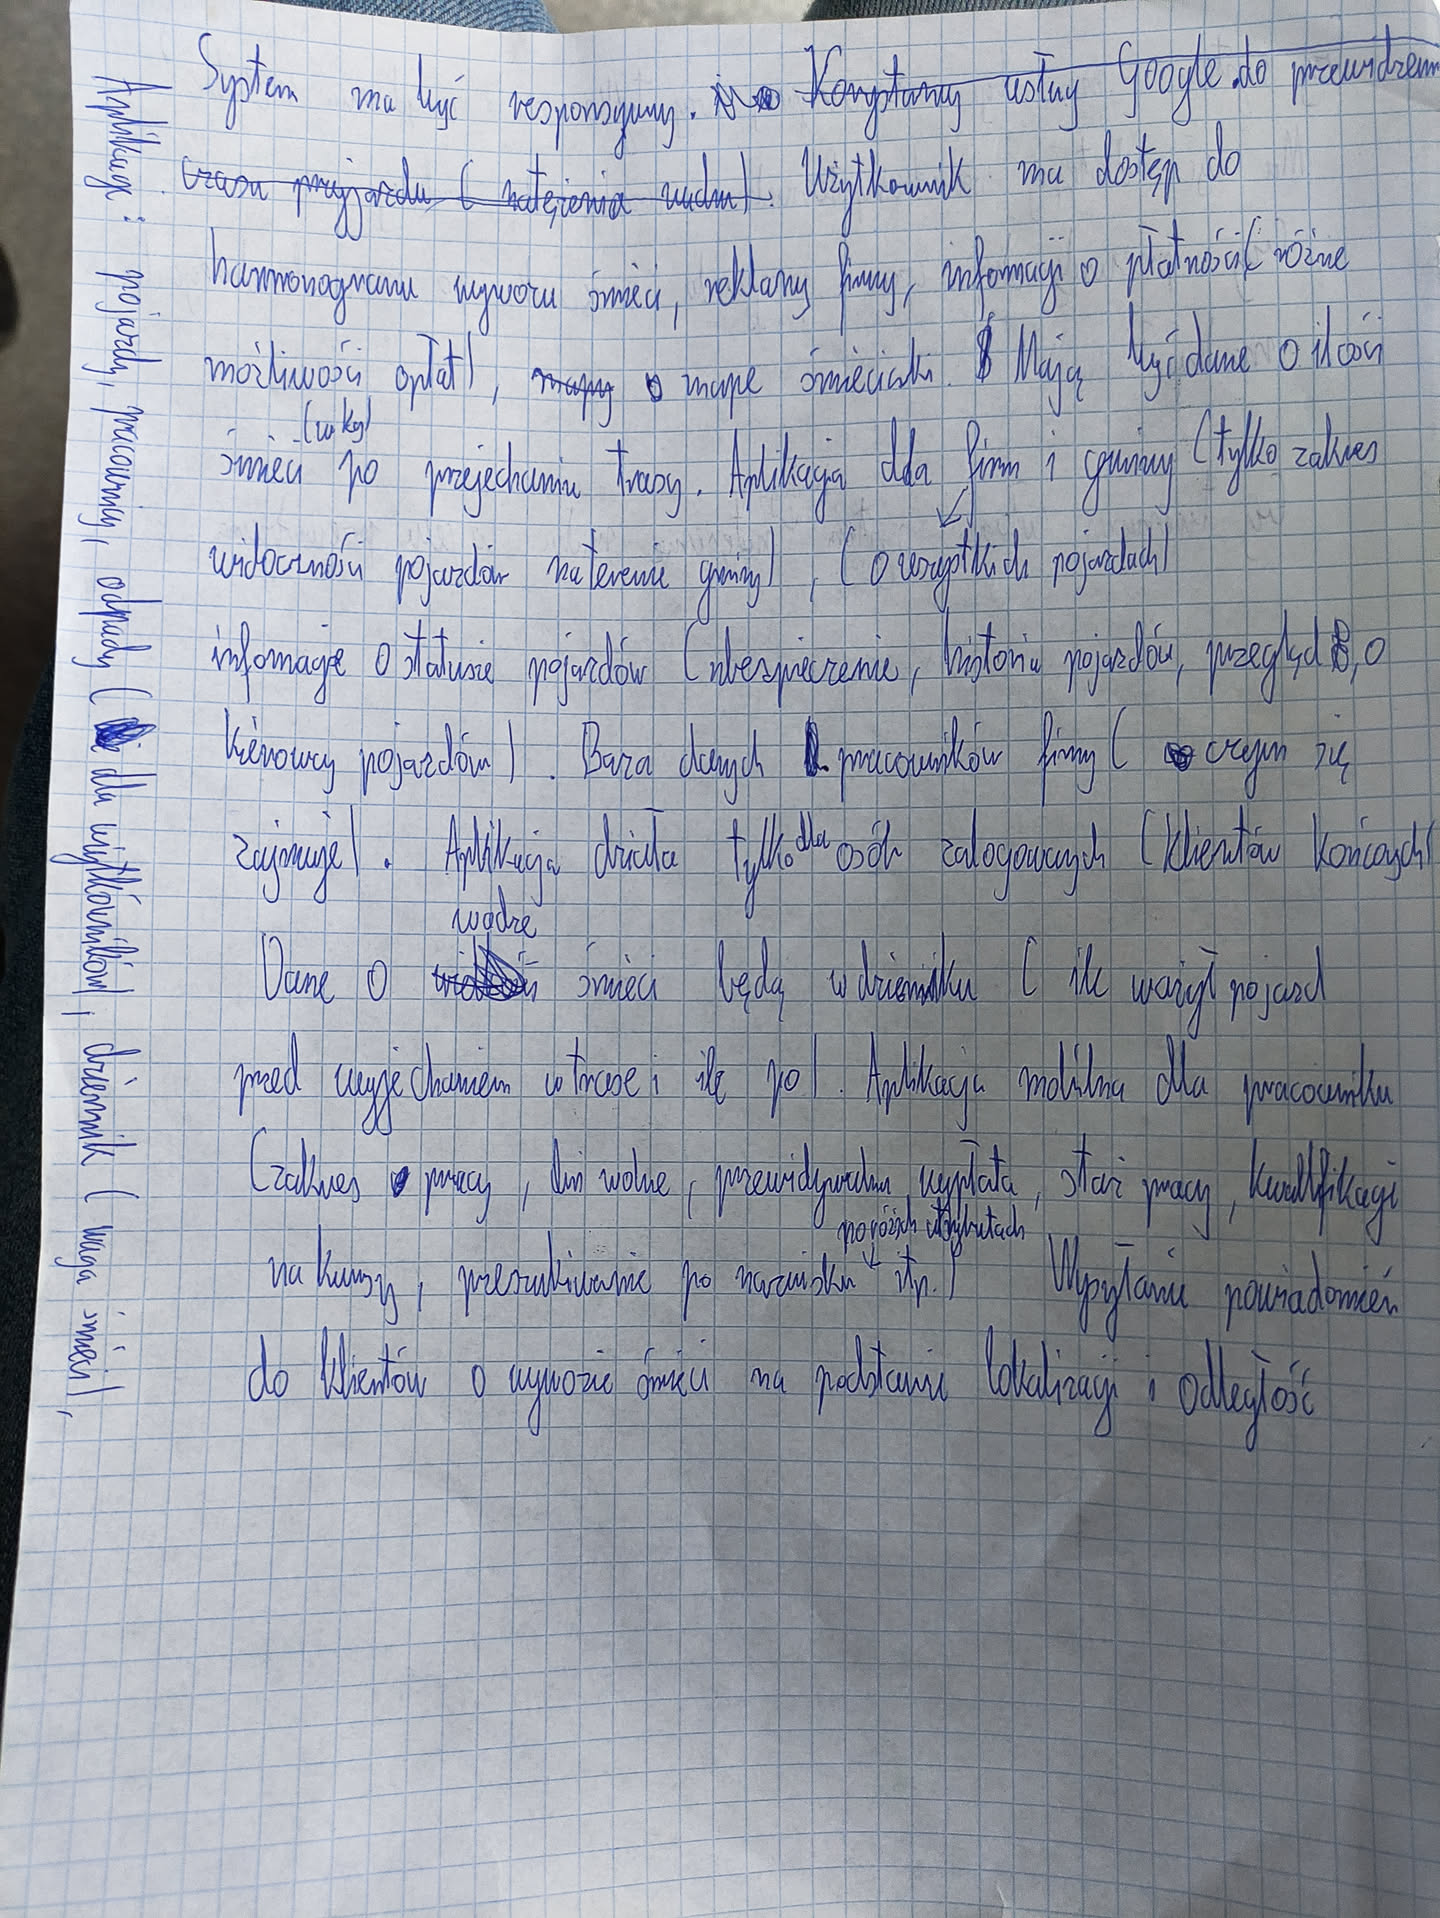 System ma być responsywny. Korzystamy usługi Google do przewidzenia
czasu przyjazdu (natężenia ruchu). Użytkownik ma dostęp do
harmonogramu wywozu śmieci, reklamy firmy, informacji o płatności (różne
możliwości opłat), mapy o mapę śmieciarki. Mają być dane o ilości
(w kg)
śmieci po przejechaniu trasy. Aplikacja dla firm i gminy (tylko zakres
widoczności pojazdów na terenie gminy), (o wszystkich pojazdach)
infomacje o statusie pojazdów (ubezpieczenie, historia pojazdów, przegląd, o
kierowcy pojazdów). Baza danych pracowników firmy (czym się
zajmuje). Aplikacja działa tylko dla osób zalogowanych (klientów końcowych)
wadze
Dane o śmieci będą w dzienniku (ile ważył pojazd
przed wyjechaniem w trasę i ilę po). Aplikacja mobilna dla pracownika
(zakres pracy, dni wolne, przewidywalna wypłata, staż pracy, kwalifikacji
po różnych atrybutach
na kursy, przeszukiwanie po nazwisku itp.) Wysyłanie powiadomień
do klientów o wywozie śmieci na podstawie lokalizacji i odległość
Aplikacje: pojazdy, pracownicy, odpady (dla użytkowników), dziennik (waga śmieci),